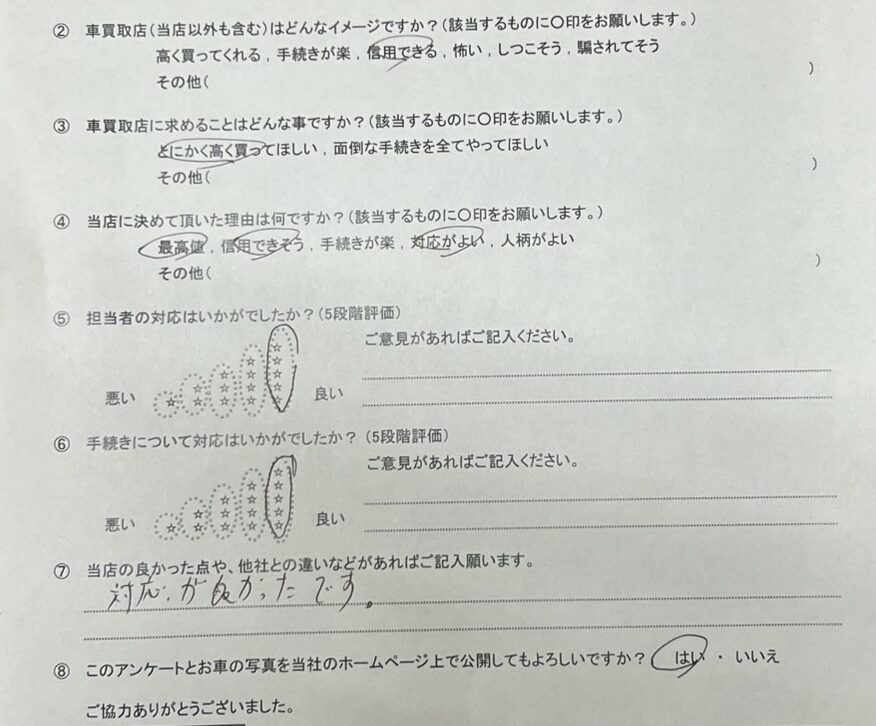 ② 車買取店(当店以外も含む)はどんなイメージですか?(該当するものに〇印をお願いします。)
高く買ってくれる , 手続きが楽 , 信用できる , 怖い , しつこそう , 騙されてそう
その他( )
③ 車買取店に求めることはどんな事ですか?(該当するものに〇印をお願いします。)
とにかく高く買ってほしい , 面倒な手続きを全てやってほしい
その他( )
④ 当店に決めて頂いた理由は何ですか?(該当するものに〇印をお願いします。)
最高値 , 信用できそう , 手続きが楽 , 対応がよい , 人柄がよい
その他( )
⑤ 担当者の対応はいかがでしたか?(5段階評価)
ご意見があればご記入ください。
悪い ☆ ☆☆ ☆☆☆ ☆☆☆☆ ☆☆☆☆☆ 良い
⑥ 手続きについて対応はいかがでしたか? (5段階評価)
ご意見があればご記入ください。
悪い ☆ ☆☆ ☆☆☆ ☆☆☆☆ ☆☆☆☆☆ 良い
⑦ 当店の良かった点や、他社との違いなどがあればご記入願います。
対応が良かったです。
⑧ このアンケートとお車の写真を当社のホームページ上で公開してもよろしいですか? はい ・ いいえ
ご協力ありがとうございました。